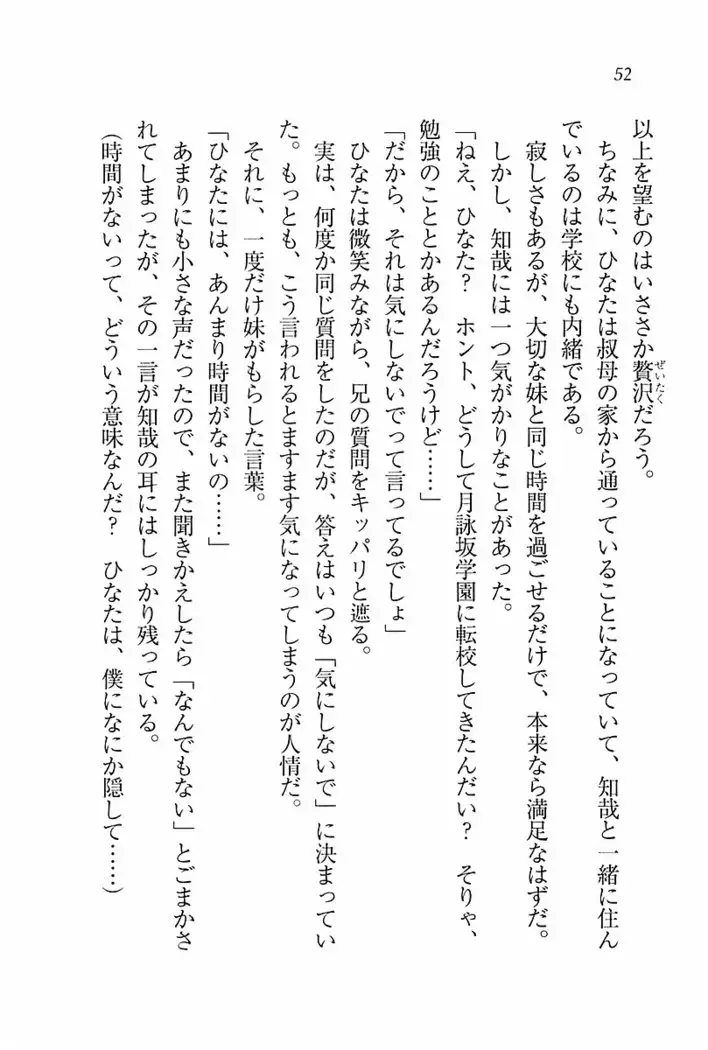 52
以上を望むのはいささか贅沢だろう。
ぜいたく
ちなみに、ひなたは叔母の家から通っていることになっていて、知哉と一緒に住ん
でいるのは学校にも内緒である。
寂しさもあるが、大切な妹と同じ時間を過ごせるだけで、本来なら満足なはずだ。
しかし、知哉には一つ気がかりなことがあった。
「ねえ、ひなた?　ホント、どうして月詠坂学園に転校してきたんだい?　そりゃ、
勉強のこととかあるんだろうけど……」
「だから、それは気にしないでって言ってるでしょ」
ひなたは微笑みながら、兄の質問をキッパリと遮る。
実は、何度か同じ質問をしたのだが、答えはいつも「気にしないで」に決まってい
た。もっとも、こう言われるとますます気になってしまうのが人情だ。
それに、一度だけ妹がもらした言葉。
「ひなたには、あんまり時間がないの……」
あまりにも小さな声だったので、また聞きかえしたら「なんでもない」とごまかさ
れてしまったが、その一言が知哉の耳にはしっかり残っている。
(時間がないって、どういう意味なんだ?　ひなたは、僕になにか隠して……)